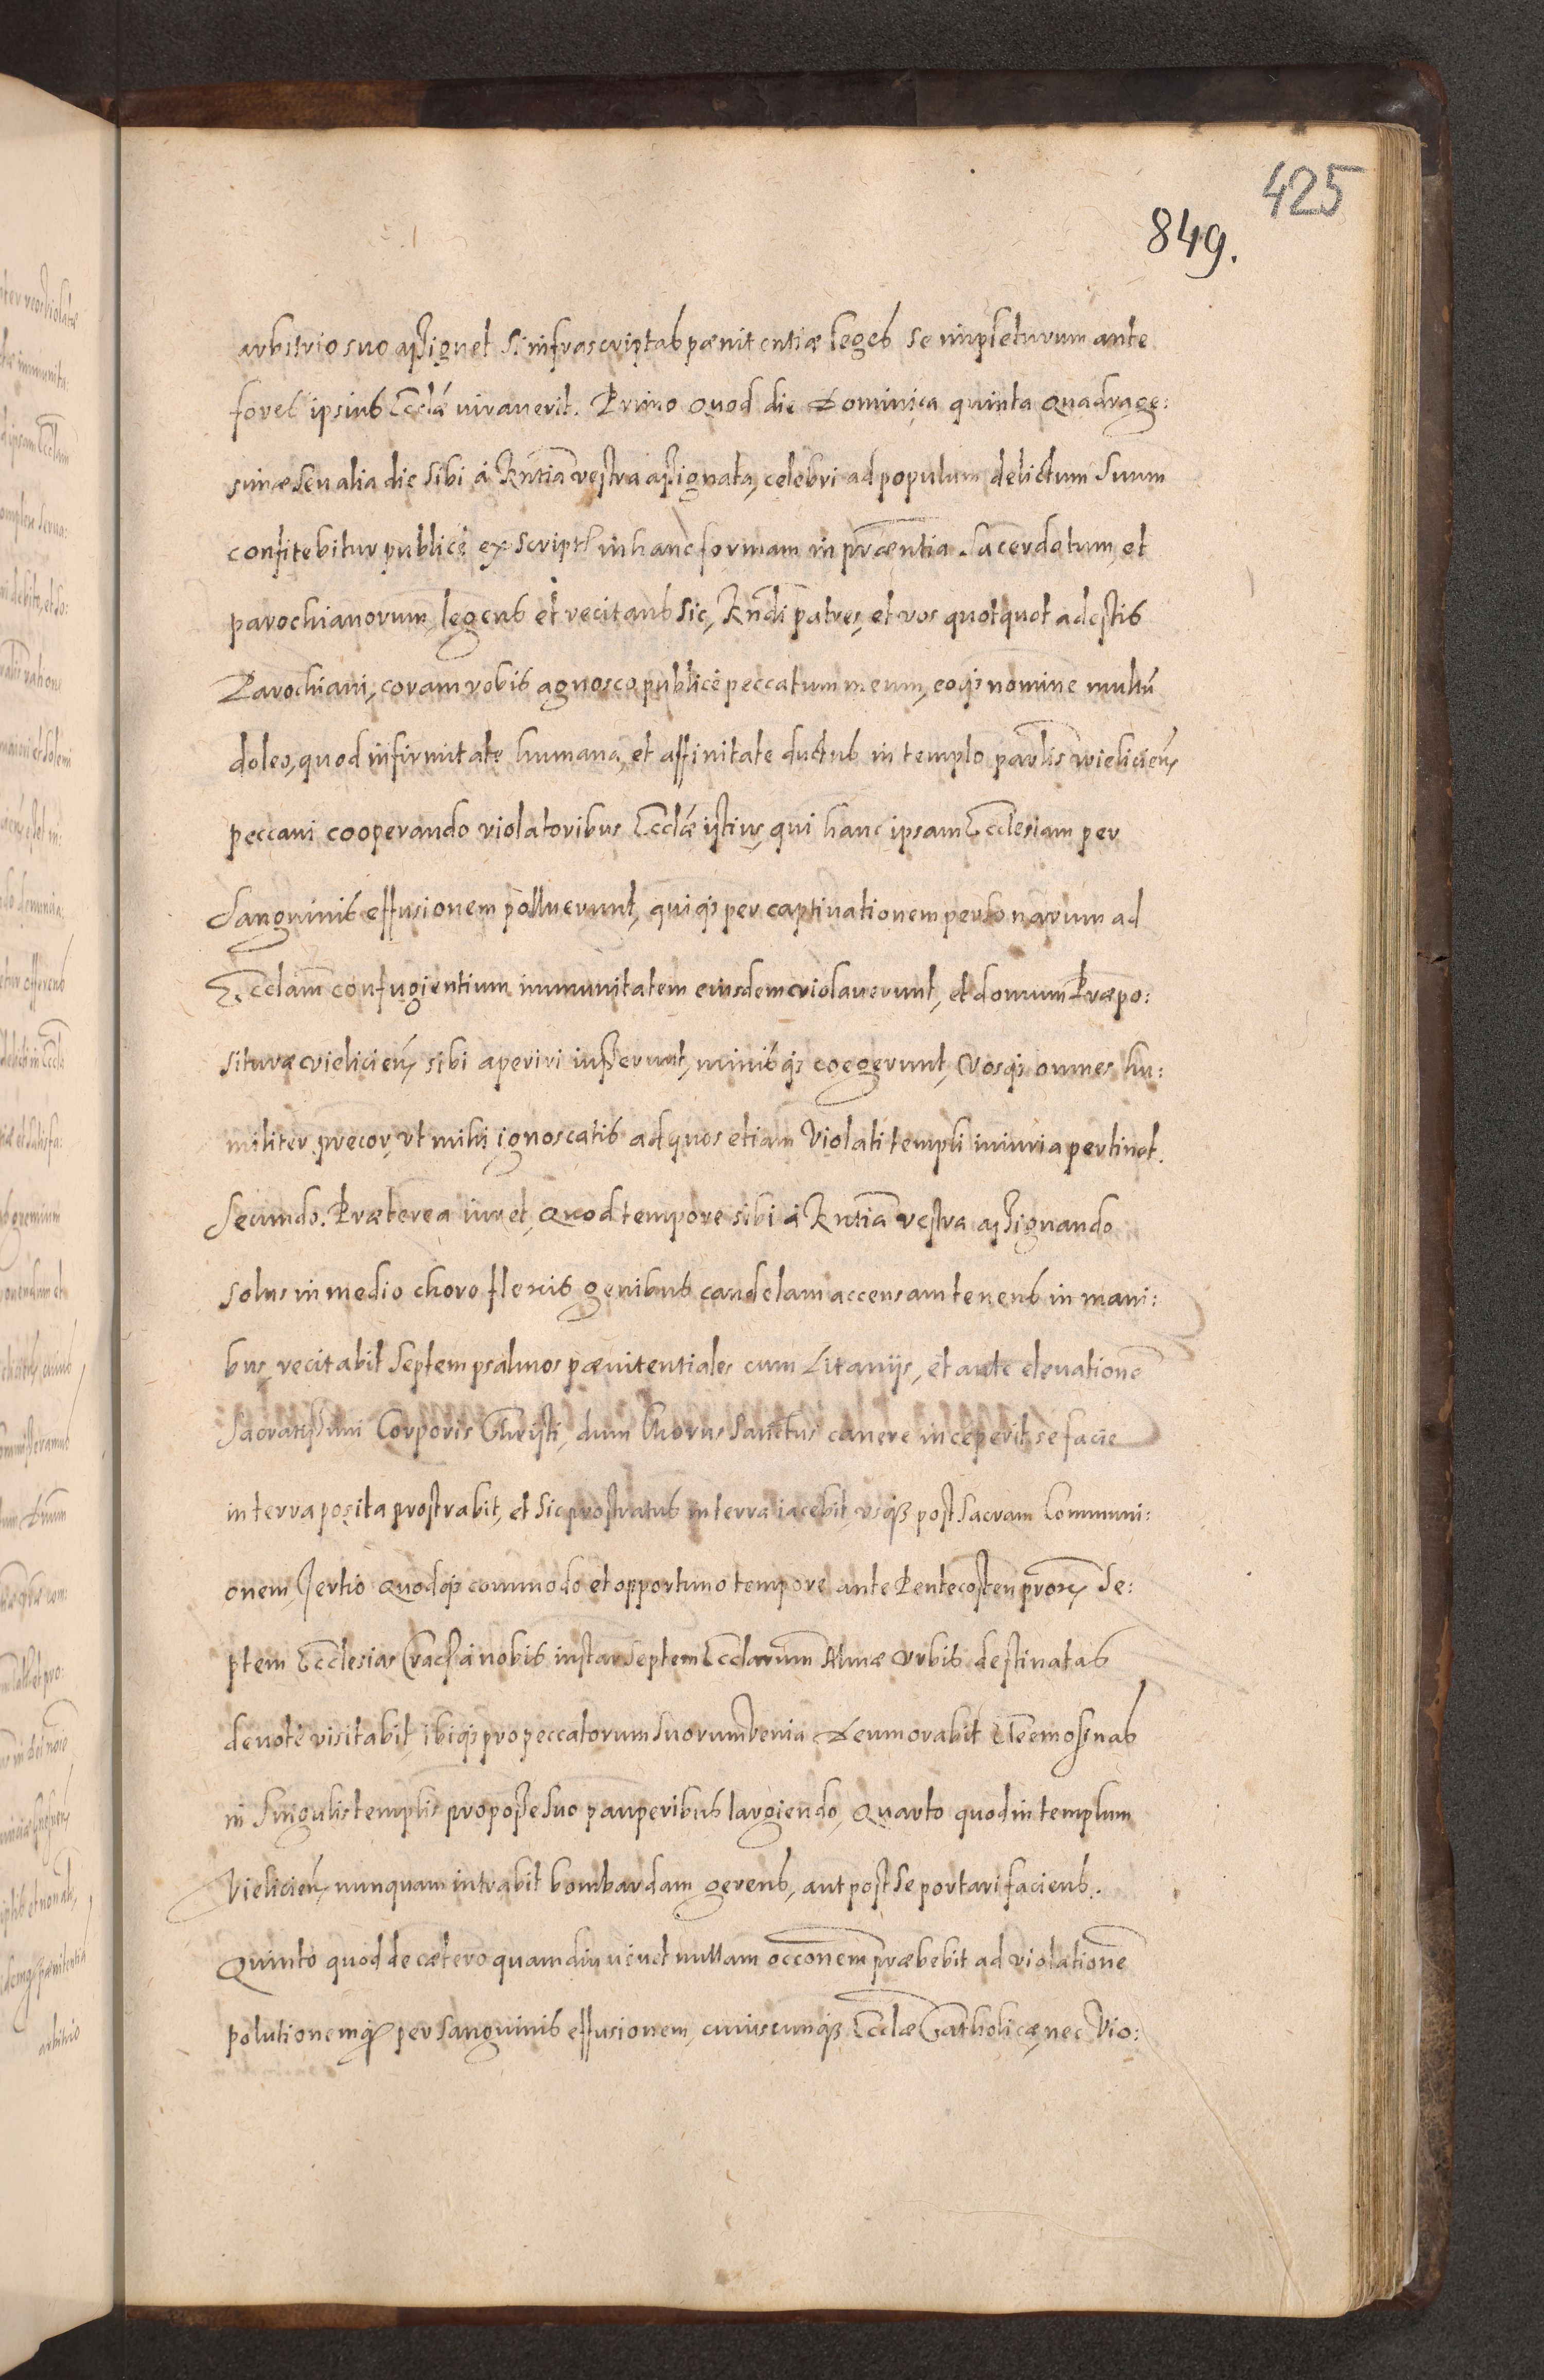 425
849.
arbitrio suo assignet si infrascriptas pænitentiæ leges se impleturum ante
fores ipsius Ecclæ iuraverit. Primo Quod die Dominica quinta Quadrage:
simæ seu alia die sibi à Rntia vestra assignata, celebri ad populum delictum suum
confitebitur publicè ex scripto in hanc formam in præntia Sacerdotum, et
parochianorum, legens et recitans sic, Rndi patres, et vos quotquot adestis
Parochiani, coram vobis agnosco publicè peccatum meum, eoq; nomine multũ
doleo, quod infirmitate humana, et affinitate ductus in templo parlis wielicien
peccavi cooperando violatoribus Ecclæ istius, qui hanc ipsam Ecclesiam per
Sanguinis effusionem polluerunt, quiq; per captivationem personarum ad
Ecclam confugientium immunitatem eiusdem violaverunt, et domum Præpo:
situræ vielicien sibi aperiri iusserunt, minisq; coegerunt, Vosq; omnes hu:
militer precor, vt mihi ignoscatis ad quos etiam Violati templi iniuria pertinet.
Secundo. Præterea iuret, Quod tempore sibi à Rntia vestra assignando
solus in medio choro flexis genibus candelam accensam tenens in mani:
bus, recitabit septem psalmos pænitentiales cum Litaniis, et ante elevationẽ
Sacratissimi Corporis Christi, dum Chorus Sanctus canere inceperit se facie
in terra posita prostrabit, et sic prostratus in terra iacebit, vsq; post sacram Communi:
onem, Tertio Quodq; commodo et opportuno tempore ante Pentecosten prox Se:
ptem Ecclesias Crac a nobis instar septem Ecclarum Almæ Vrbis destinatas
devotè visitabit, ibiq; pro peccatorum suorum venia Deum orabit Eleemosinas
in singulis templis pro posse suo pauperibus largiendo, Quarto quod in templum
Vielicien nunquam intrabit bombardam gerens, aut post se portari faciens.
Quinto quod de cætero quamdiu vivet nullam occonem præbebit ad violationẽ
polutionemq; per sanguinis effusionem, cuiuscunq; Ecclæ Catholicæ, nec Vio: